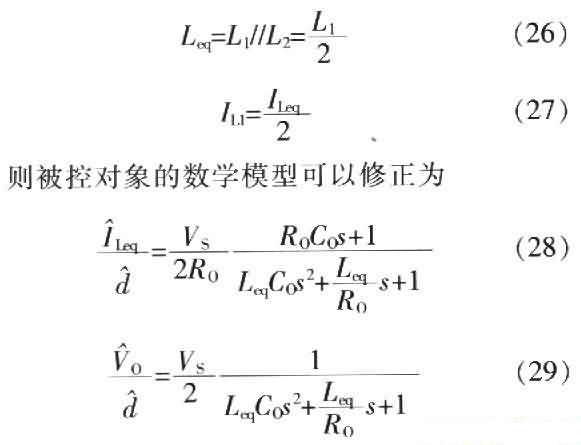 L_eq=L_1//L_2=\frac{L_1}{2} (26)
I_{L1}=\frac{I_{Leq}}{2} (27)
则被控对象的数学模型可以修正为
\frac{\hat{I}_{Leq}}{\hat{d}}=\frac{V_S}{2R_O}\frac{R_O C_O s+1}{L_{eq}C_O s^2+\frac{L_{eq}}{R_O}s+1} (28)
\frac{\hat{V}_O}{\hat{d}}=\frac{V_S}{2}\frac{1}{L_{eq}C_O s^2+\frac{L_{eq}}{R_O}s+1} (29)